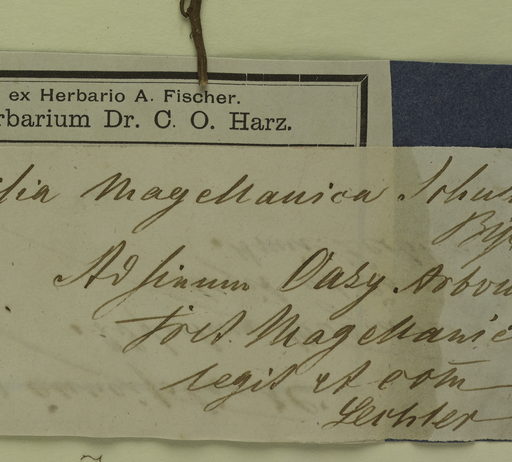 ex Herbario A. Fischer.
rbarium Dr. C. O. Harz.
Magellanica Schu
Ad sinum Oazy Arbou
Fret. Magellanic
legit et com
Lechler